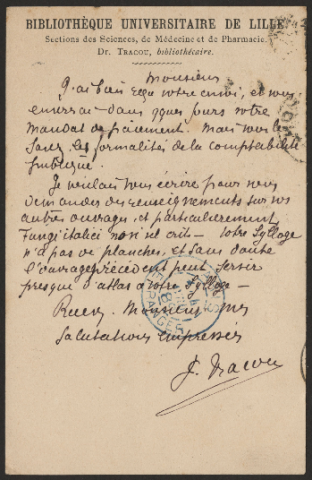 BIBLIOTHÈQUE UNIVERSITAIRE DE LILLE
Sections des Sciences, de Médecine et de Pharmacie.
Dr. TRACOU, bibliothécaire.
Monsieur
J'ai bien reçu votre envoi, et vous
enverrai dans qques jours votre
mandat de paiement. Mais vous
savez les formalités de la comptabilité
publique.
Je voulais vous écrire pour vous
demander des renseignements sur vos
autres ouvrages, et particulièrement
Fungi italici — Votre Sylloge
n'a pas de planches, et sans doute
l'ouvrage précédent peut servir
presque d'atlas à votre Sylloge —
Recev. Monsieur mes
salutations empressées
J. Tracou